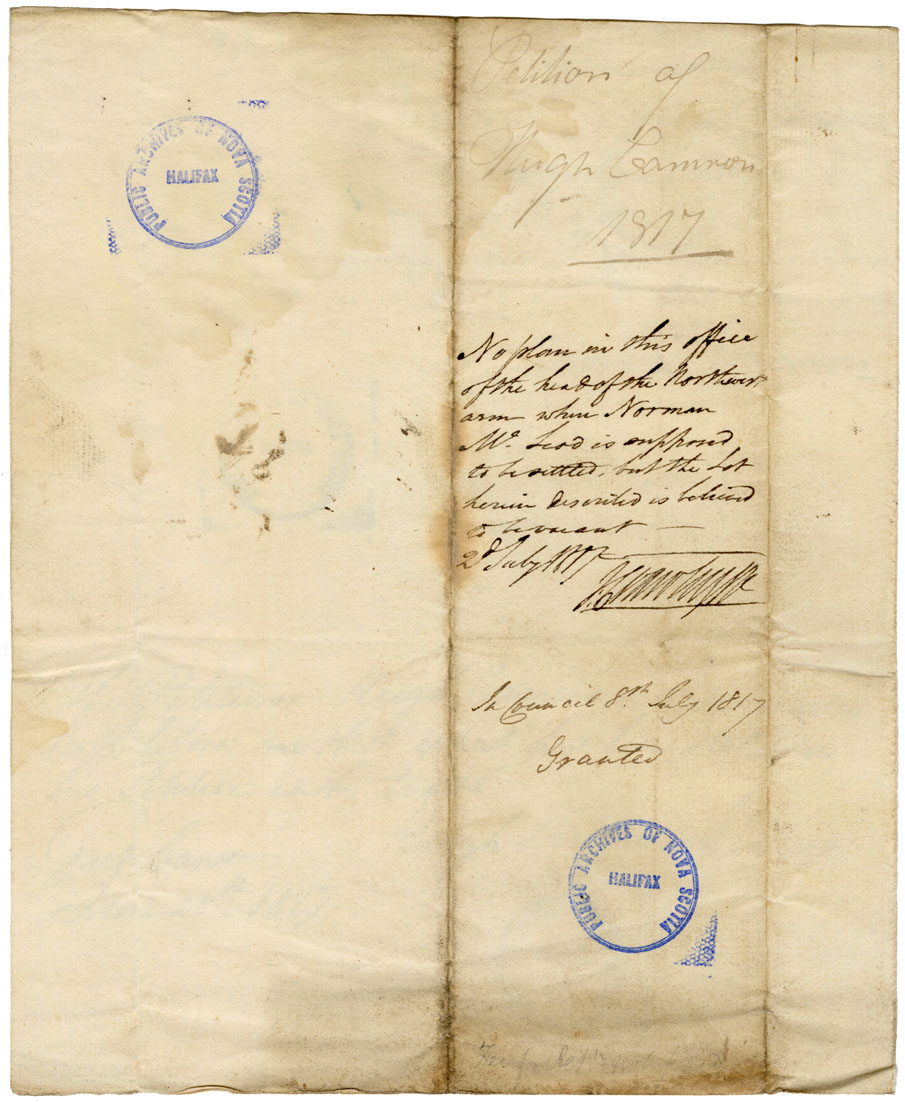 PUBLIC ARCHIVES OF NOVA SCOTIA
HALIFAX
Petition of
Hugh Camron
1817
No plan in this office
of the head of the Northwest
arm where Norman
Mc. Leod is supposed
to be settled, but the Lot
herein described is believed
to be vacant —
2d July 1817
In Council 8th July 1817
Granted
PUBLIC ARCHIVES OF NOVA SCOTIA
HALIFAX